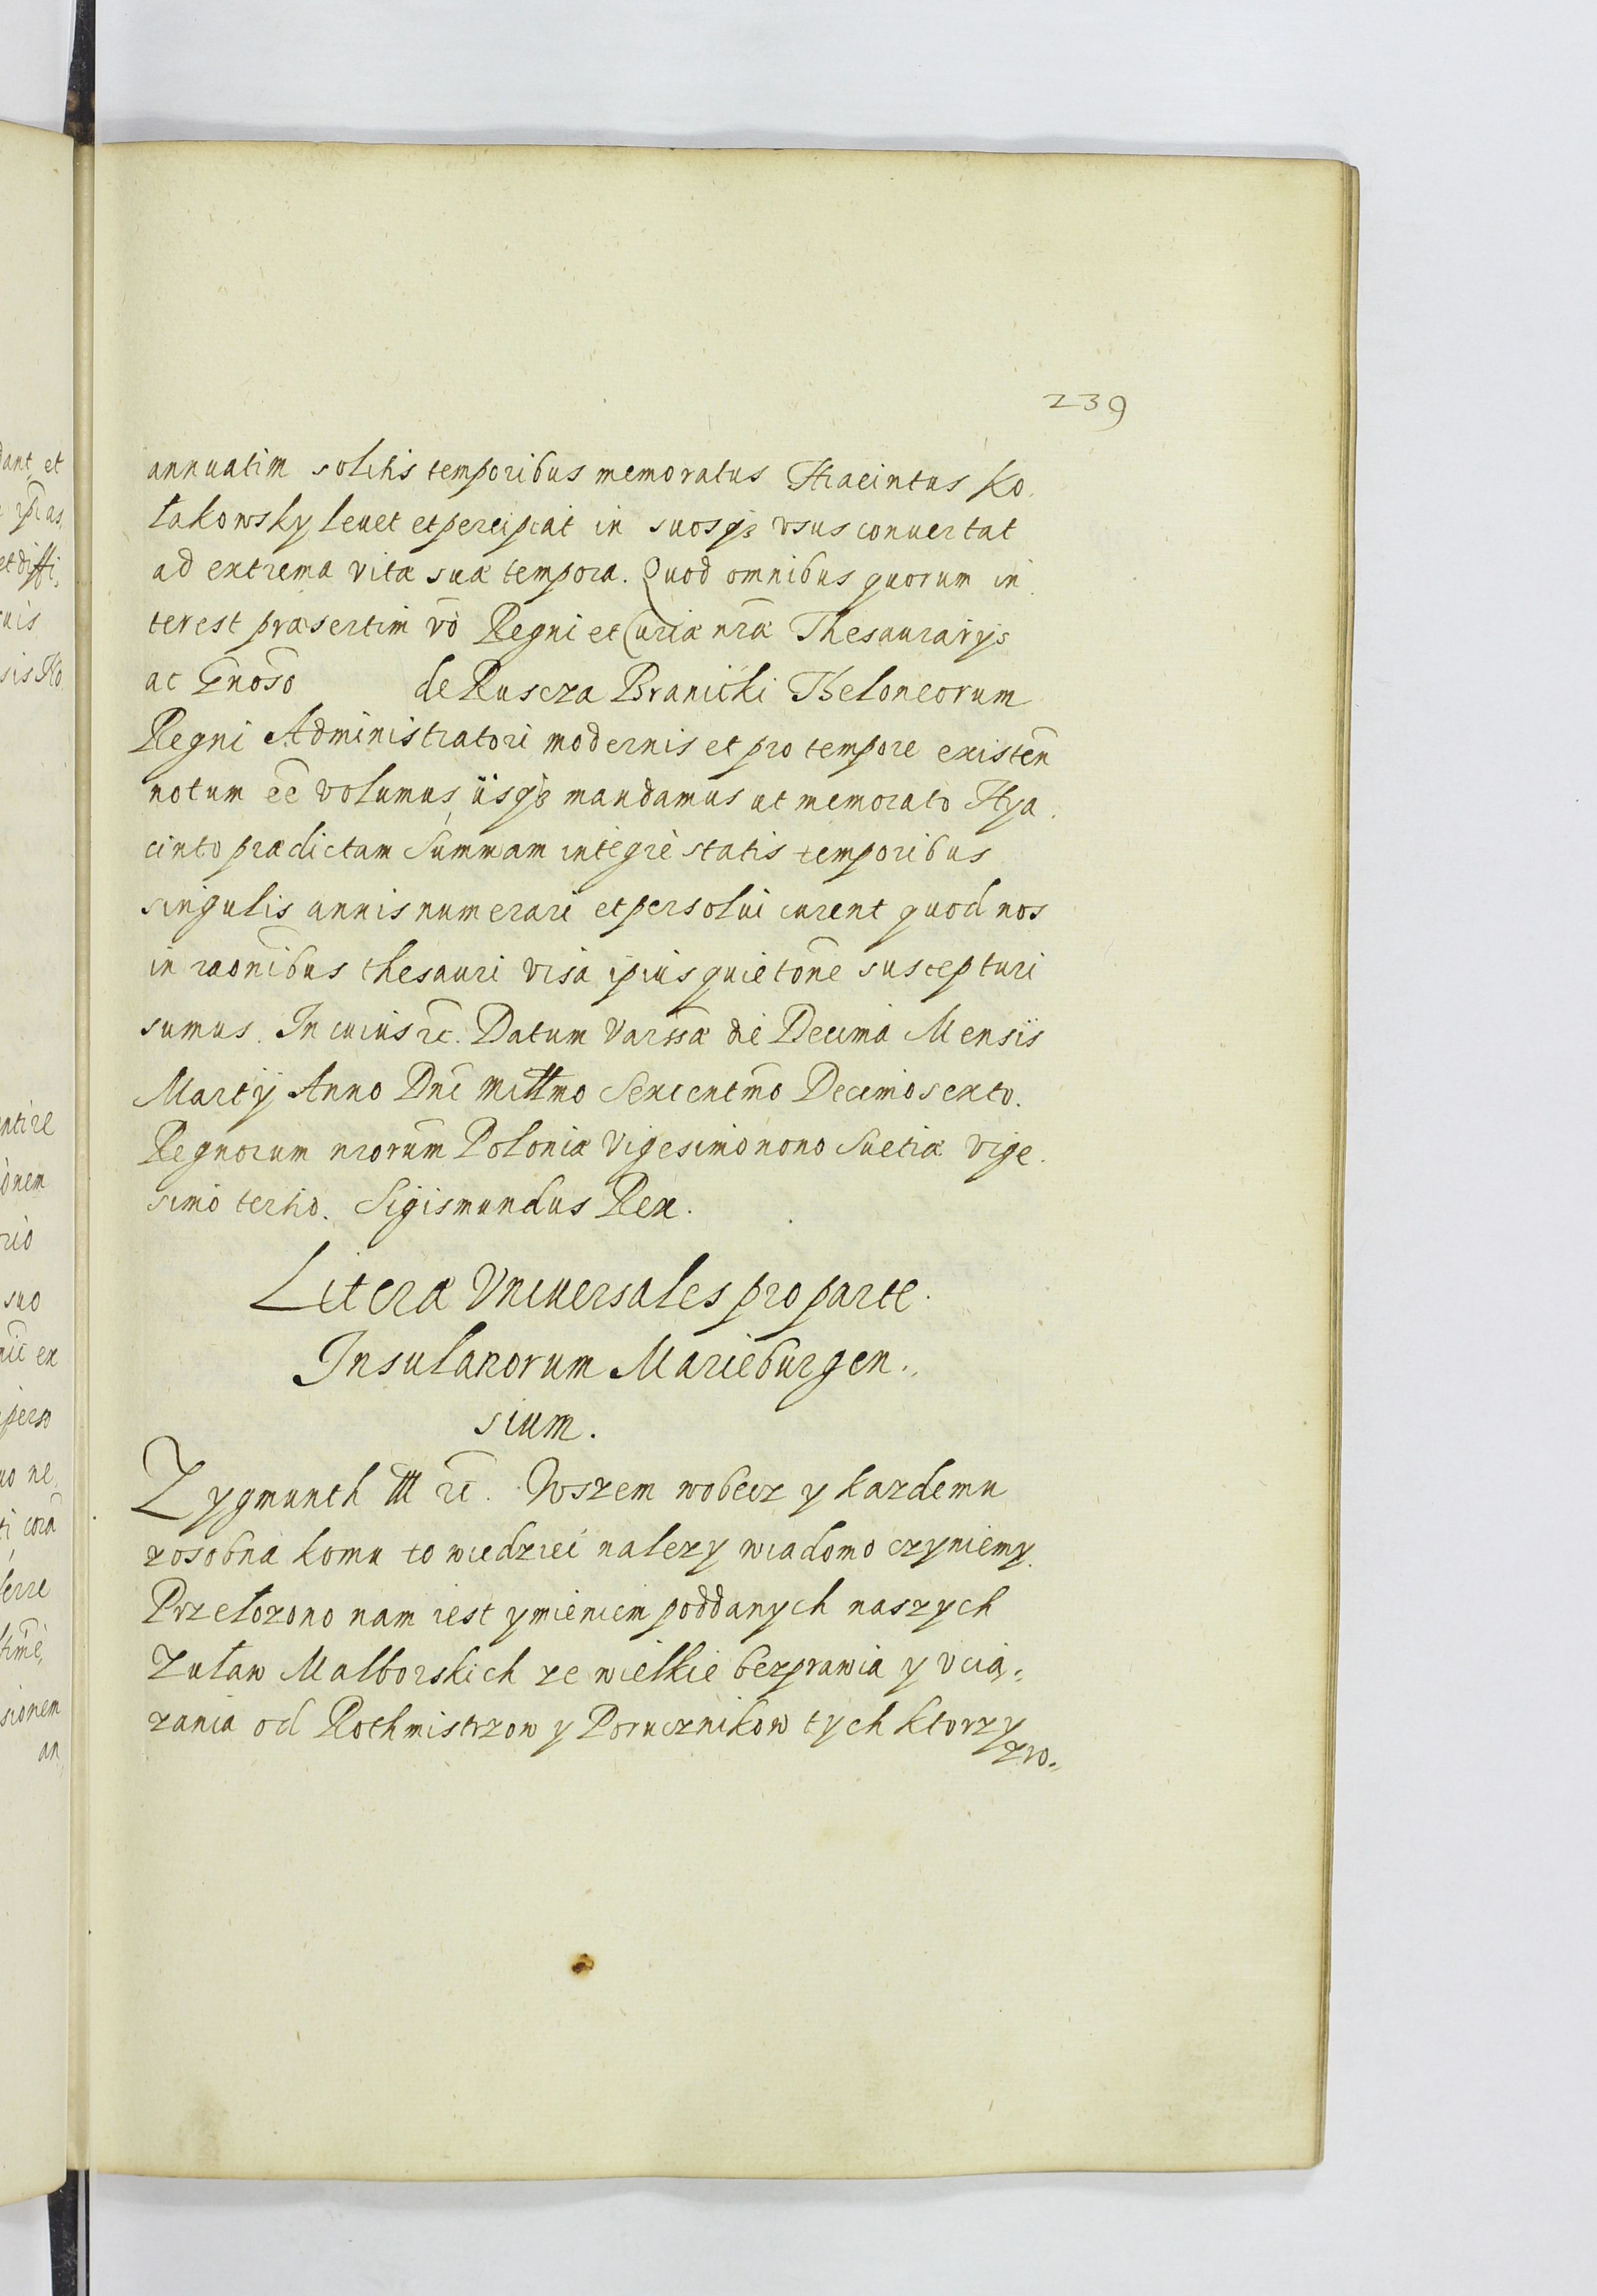 239
annuatim solitis temporibus memoratus Hiacintus Ko.
łakowsky leuet et percipiat in suosqз vsus conuertat
ad extrema vitæ suæ tempora. Quod omnibus quorum in.
terest præsertim vō Regni et Curiæ nr̄æ Thesaurarys
ac Gn̄oso de Ruscza Branicki Theloneorum
Regni Administratori modernis et pro tempore existen̄
notum ēē volumus, iisqз mandamus ut memorato Hya.
cinto prædictam Summam integrè statis temporibus
singulis annis numerari et persolui curent quod nos
in rao̅nibus thesauri visa ip̄ius quieto̅ne suscepturi
sumus. In cuius rc̄. Datum Vars̄sæ die Decima Mensis
Martÿ Anno Dn̄i Mill̄mo Sexcentm̄o Decimosexto.
Regnorum nr̄orum Poloniæ Vigesimonono Suetiæ Vige.
simo tertio. Sigismundus Rex.
Literæ Vniuersales pro parte.
Insulanorum Marieburgen.,
sium.
Zygmunth III rc̄. Wszem wobecz y kazdemu
zosobna komu to wiedziec nalezy wiadomo czyniemy.
Przełozono nam iest ymieniem poddanych naszych
Zuław Malborskich ze wielkie bezprawia y vcią,,
zania od Rothmistrzow y Porucznikow tych ktorzy
zwo.,
dant et
ip̄as,
et diffi,
uis
sis Ko
ntire
onem
rio
suo
ex
perso
uo ne,
ti corā
ferre
sionem
an,